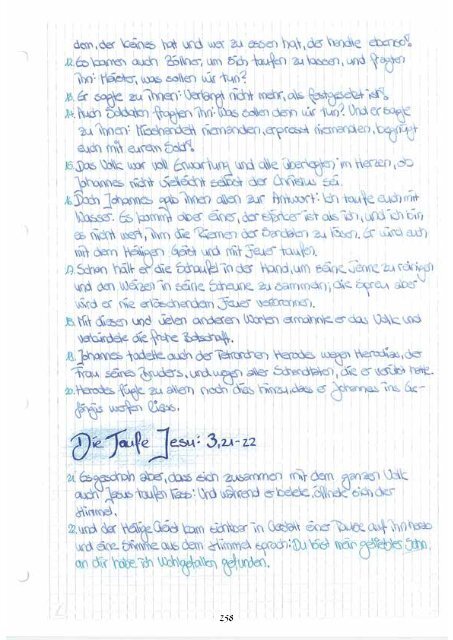 dem, der keines hat und wer zu essen hat, der handle ebenso!
12. Es kamen auch Zöllner, um sich taufen zu lassen, und fragten
ihn: Meister, was sollen wir tun?
13. Er sagte zu ihnen: Verlangt nicht mehr, als festgesetzt ist!
14. Auch Soldaten fragten ihn: Was sollen denn wir tun? Und er sagte
zu ihnen: Misshandelt niemanden, erpresst niemanden, begnügt
euch mit eurem Sold!
15. Das Volk war voll Erwartung und alle überlegten im Herzen, ob
Johannes nicht vielleicht selbst der Christus sei.
16. Doch Johannes gab ihnen allen zur Antwort: Ich taufe euch mit
Wasser. Es kommt aber einer, der stärker ist als ich, und ich bin
es nicht wert, ihm die Riemen der Sandalen zu lösen. Er wird euch
mit dem Heiligen Geist und mit Feuer taufen.
17. Schon hält er die Schaufel in der Hand, um seine Tenne zu reinigen
und den Weizen in seine Scheune zu sammeln; die Spreu aber
wird er in nie erlöschendem Feuer verbrennen.
18. Mit diesen und vielen anderen Worten ermahnte er das Volk und
verkündete die frohe Botschaft.
Johannes tadelte auch den Tetrarchen Herodes wegen Herodias, der
Frau seines Bruders, und wegen aller Schandtaten, die er verübt hatte.
20. Herodes fügte zu allem noch dies hinzu, dass er Johannes ins Ge-
fängnis werfen liess.
Die Taufe Jesu: 3,21-22
21. Es geschah aber, dass sich zusammen mit dem ganzen Volk
auch Jesus taufen liess. Und während er betete, öffnete sich der
Himmel.
22. und der Heilige Geist kam sichtbar in Gestalt einer Taube auf ihn herab
und eine Stimme aus dem Himmel sprach: Du bist mein geliebter Sohn,
an dir habe ich Wohlgefallen gefunden.
258